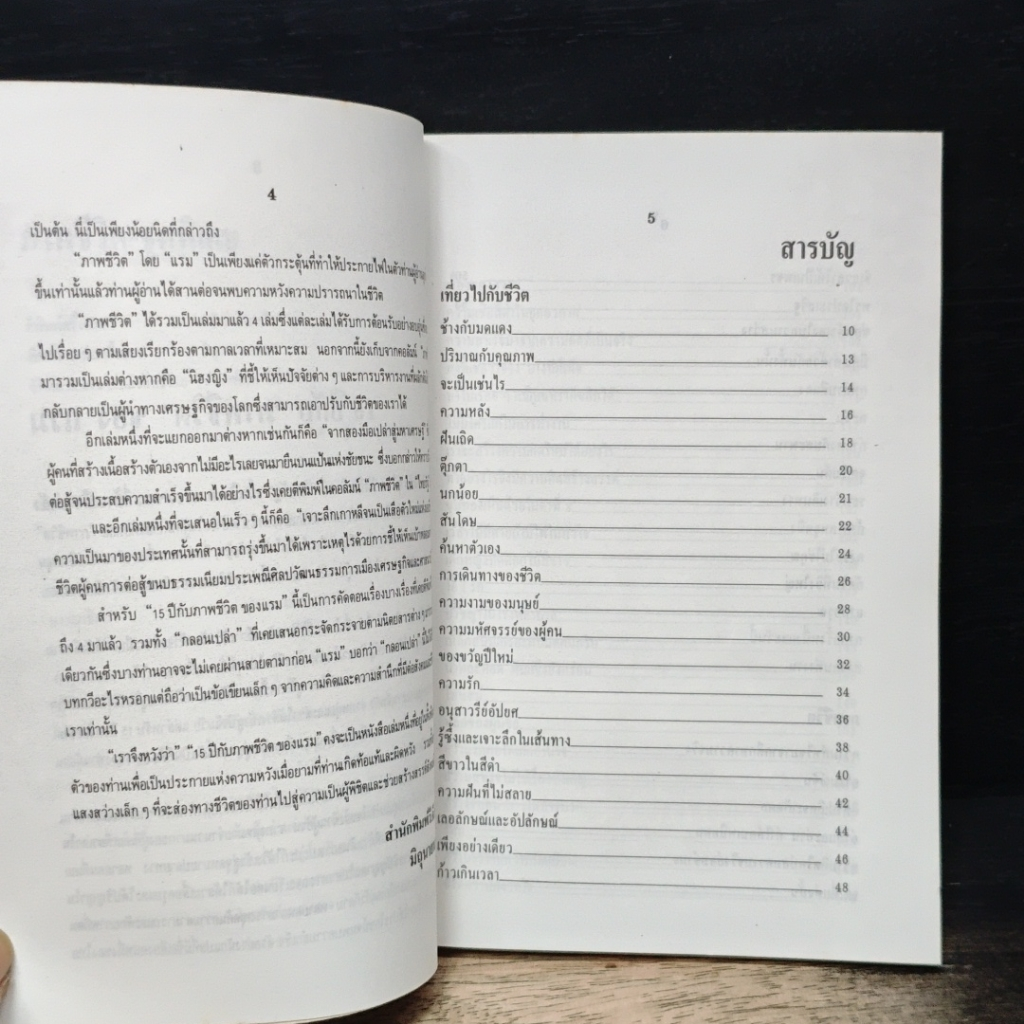 4
เป็นต้น นี่เป็นเพียงน้อยนิดที่กล่าวถึง
"ภาพชีวิต" โดย "แรม" เป็นเพียงแค่ตัวกระตุ้นที่ทำให้ประกายไฟในตัวท่านผู้อ่าน
ขึ้นเท่านั้นแล้วท่านผู้อ่านได้สานต่อจนพบความหวังความปรารถนาในชีวิต
"ภาพชีวิต" ได้รวมเป็นเล่มมาแล้ว 4 เล่มซึ่งแต่ละเล่มได้รับการต้อนรับอย่าง
ไปเรื่อย ๆ ตามเสียงเรียกร้องตามกาลเวลาที่เหมาะสม นอกจากนี้ยังเก็บจากคอลัมน์
มารวมเป็นเล่มต่างหากคือ "นิฮงญิง" ที่ชี้ให้เห็นปัจจัยต่าง ๆ และการบริหารงานที่
กลับกลายเป็นผู้นำทางเศรษฐกิจของโลกซึ่งสามารถเอาปรับกับชีวิตของเราได้
อีกเล่มหนึ่งที่จะแยกออกมาต่างหากเช่นกันก็คือ "จากสองมือเปล่าสู่มหาเศรษฐี"
ผู้คนที่สร้างเนื้อสร้างตัวเองจากไม่มีอะไรเลยจนมายืนบนแป้นแห่งชัยชนะ ซึ่งบอกกล่าวให้
ต่อสู้จนประสบความสำเร็จขึ้นมาได้อย่างไรซึ่งเคยตีพิมพ์ในคอลัมน์ "ภาพชีวิต" ใน
และอีกเล่มหนึ่งที่จะเสนอในเร็ว ๆ นี้ก็คือ "เจาะลึกเกาหลีจนเป็นเสือตัวใหม่แห่งเอเชีย
ความเป็นมาของประเทศนั้นที่สามารถรุ่งขึ้นมาได้เพราะเหตุไรด้วยการชี้ให้เห็น
ชีวิตผู้คนการต่อสู้ขนบธรรมเนียมประเพณีศิลปวัฒนธรรมการเมืองเศรษฐกิจและ
สำหรับ "15 ปีกับภาพชีวิต ของแรม" นี้เป็นการคัดตอนเรื่องบางเรื่องที่เคย
ถึง 4 มาแล้ว รวมทั้ง "กลอนเปล่า" ที่เคยเสนอกระจัดกระจายตามนิตยสารต่าง ๆ
เดียวกันซึ่งบางท่านอาจจะไม่เคยผ่านสายตามาก่อน "แรม" บอกว่า "กลอนเปล่า"
บทกวีอะไรหรอกแต่ถือว่าเป็นข้อเขียนเล็ก ๆ จากความคิดและความสำนึกที่มีต่อสังคม
เราเท่านั้น
"เราจึงหวังว่า" "15 ปีกับภาพชีวิต ของแรม" คงจะเป็นหนังสือเล่มหนึ่งที่อยู่ใน
ตัวของท่านเพื่อเป็นประกายแห่งความหวังเมื่อยามที่ท่านเกิดท้อแท้และผิดหวัง
แสงสว่างเล็ก ๆ ที่จะส่องทางชีวิตของท่านไปสู่ความเป็นผู้พิชิตและช่วยสร้างสรรค์
สำนักพิมพ์
มิถุนายน
5
สารบัญ
เที่ยวไปกับชีวิต
ช้างกับมดแดง 10
ปริมาณกับคุณภาพ 13
จะเป็นเช่นไร 14
ความหลัง 16
ฝันเถิด 18
ตุ๊กตา 20
นกน้อย 21
สันโดษ 22
ค้นหาตัวเอง 24
การเดินทางของชีวิต 26
ความงามของมนุษย์ 28
ความมหัศจรรย์ของผู้คน 30
ของขวัญปีใหม่ 32
ความรัก 34
อนุสาวรีย์อัปยศ 36
รู้ซึ้งและเจาะลึกในเส้นทาง 38
สีขาวในสีดำ 40
ความฝันที่ไม่สลาย 42
เลอลักษณ์และอัปลักษณ์ 44
เพียงอย่างเดียว 46
ก้าวเกินเวลา 48